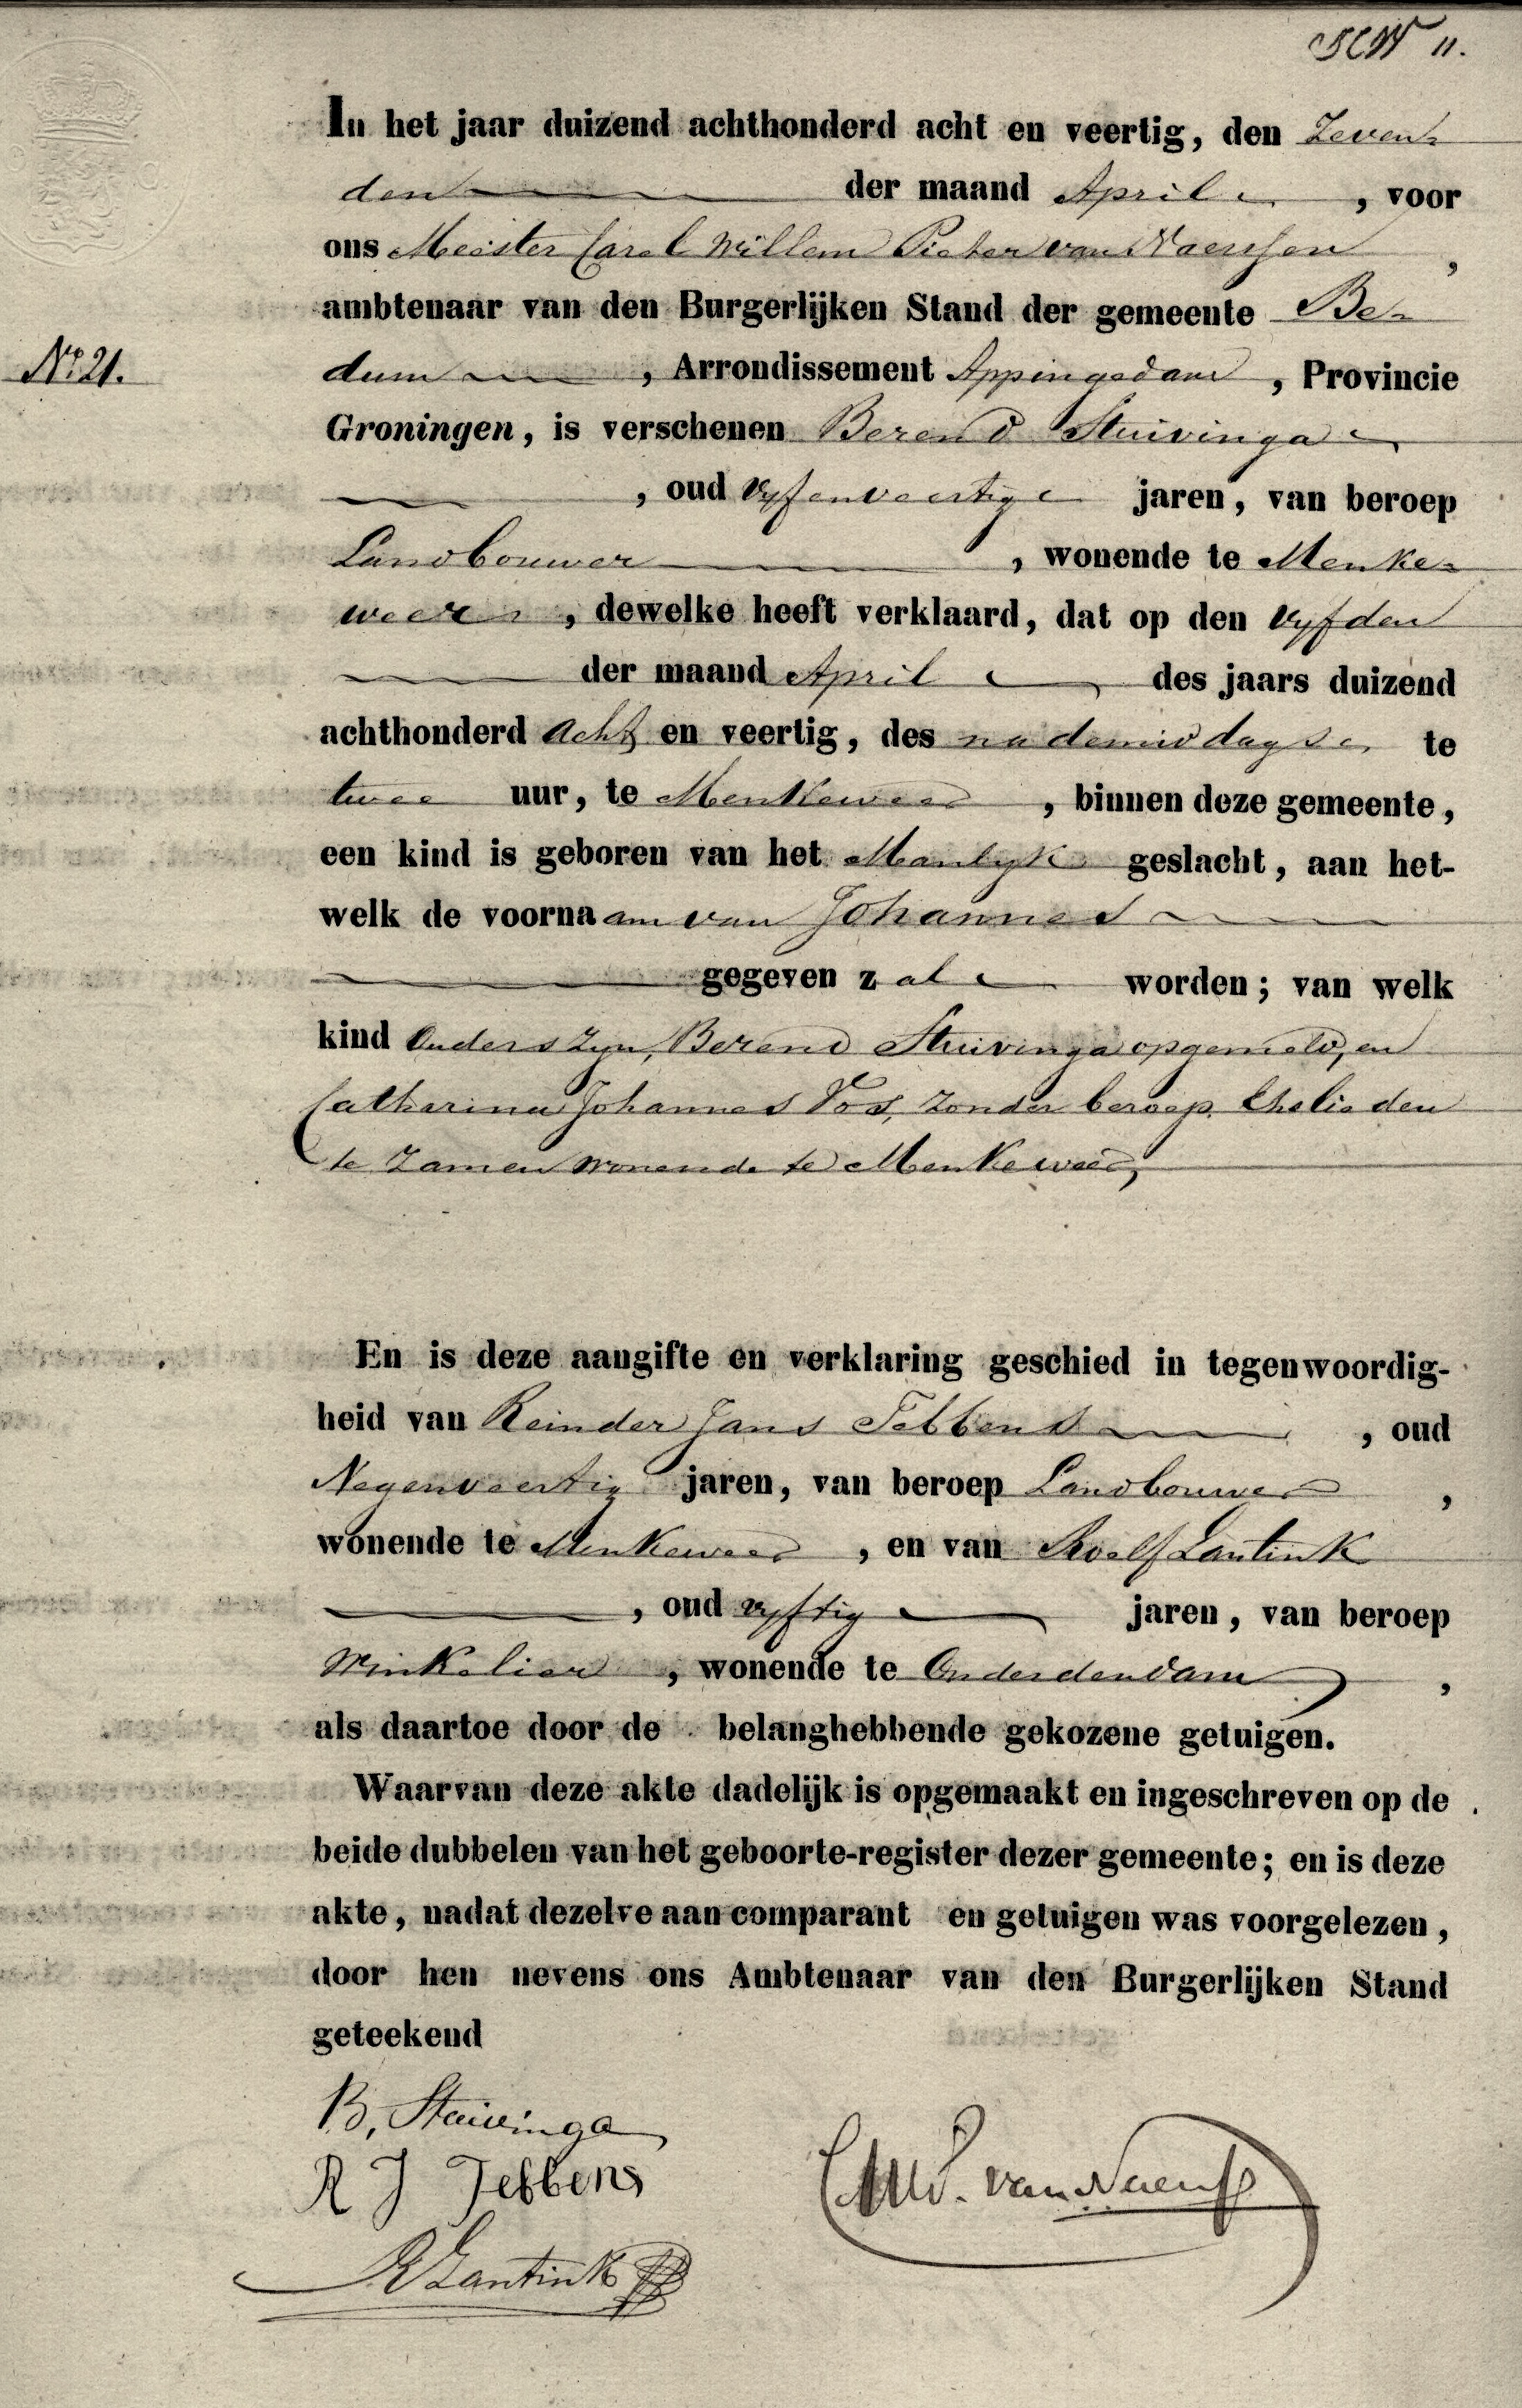 11.
In het jaar duizend achthonderd acht en veertig, den Zeven-
den der maand April, voor
ons Meester Carel Willem Pieter van Naerssen,
ambtenaar van den Burgerlijken Stand der gemeente Be-
No. 21.
dum, Arrondissement Appingadam, Provincie
Groningen, is verschenen Berend Stuivinga
, oud vyfenveertig jaren, van beroep
Landbouwer, wonende te Menke-
weer, dewelke heeft verklaard, dat op den vyfden
der maand April des jaars duizend
achthonderd acht en veertig, des nademiddags te
twee uur, te Menkeweer, binnen deze gemeente,
een kind is geboren van het Manlyk geslacht, aan het-
welk de voornaam van Johannes
gegeven zal worden; van welk
kind Ouders zyn, Berend Stuivinga opgemeld, en
Catharina Johannes Vos, zonder beroep. Ehelieden
te zamen wonende te Menkeweer,
En is deze aangifte en verklaring geschied in tegenwoordig-
heid van Reinder Jans Tebbens, oud
Negenveertig jaren, van beroep Landbouwer,
wonende te Menkeweer, en van Roelf Lantink
, oud vyftig jaren, van beroep
Winkelier, wonende te Onderdendam,
als daartoe door de belanghebbende gekozene getuigen.
Waarvan deze akte dadelijk is opgemaakt en ingeschreven op de
beide dubbelen van het geboorte-register dezer gemeente; en is deze
akte, nadat dezelve aan comparant en getuigen was voorgelezen,
door hen nevens ons Ambtenaar van den Burgerlijken Stand
geteekend
B. Stuivinga
R J Tebbens
van Naerss
R Lantink